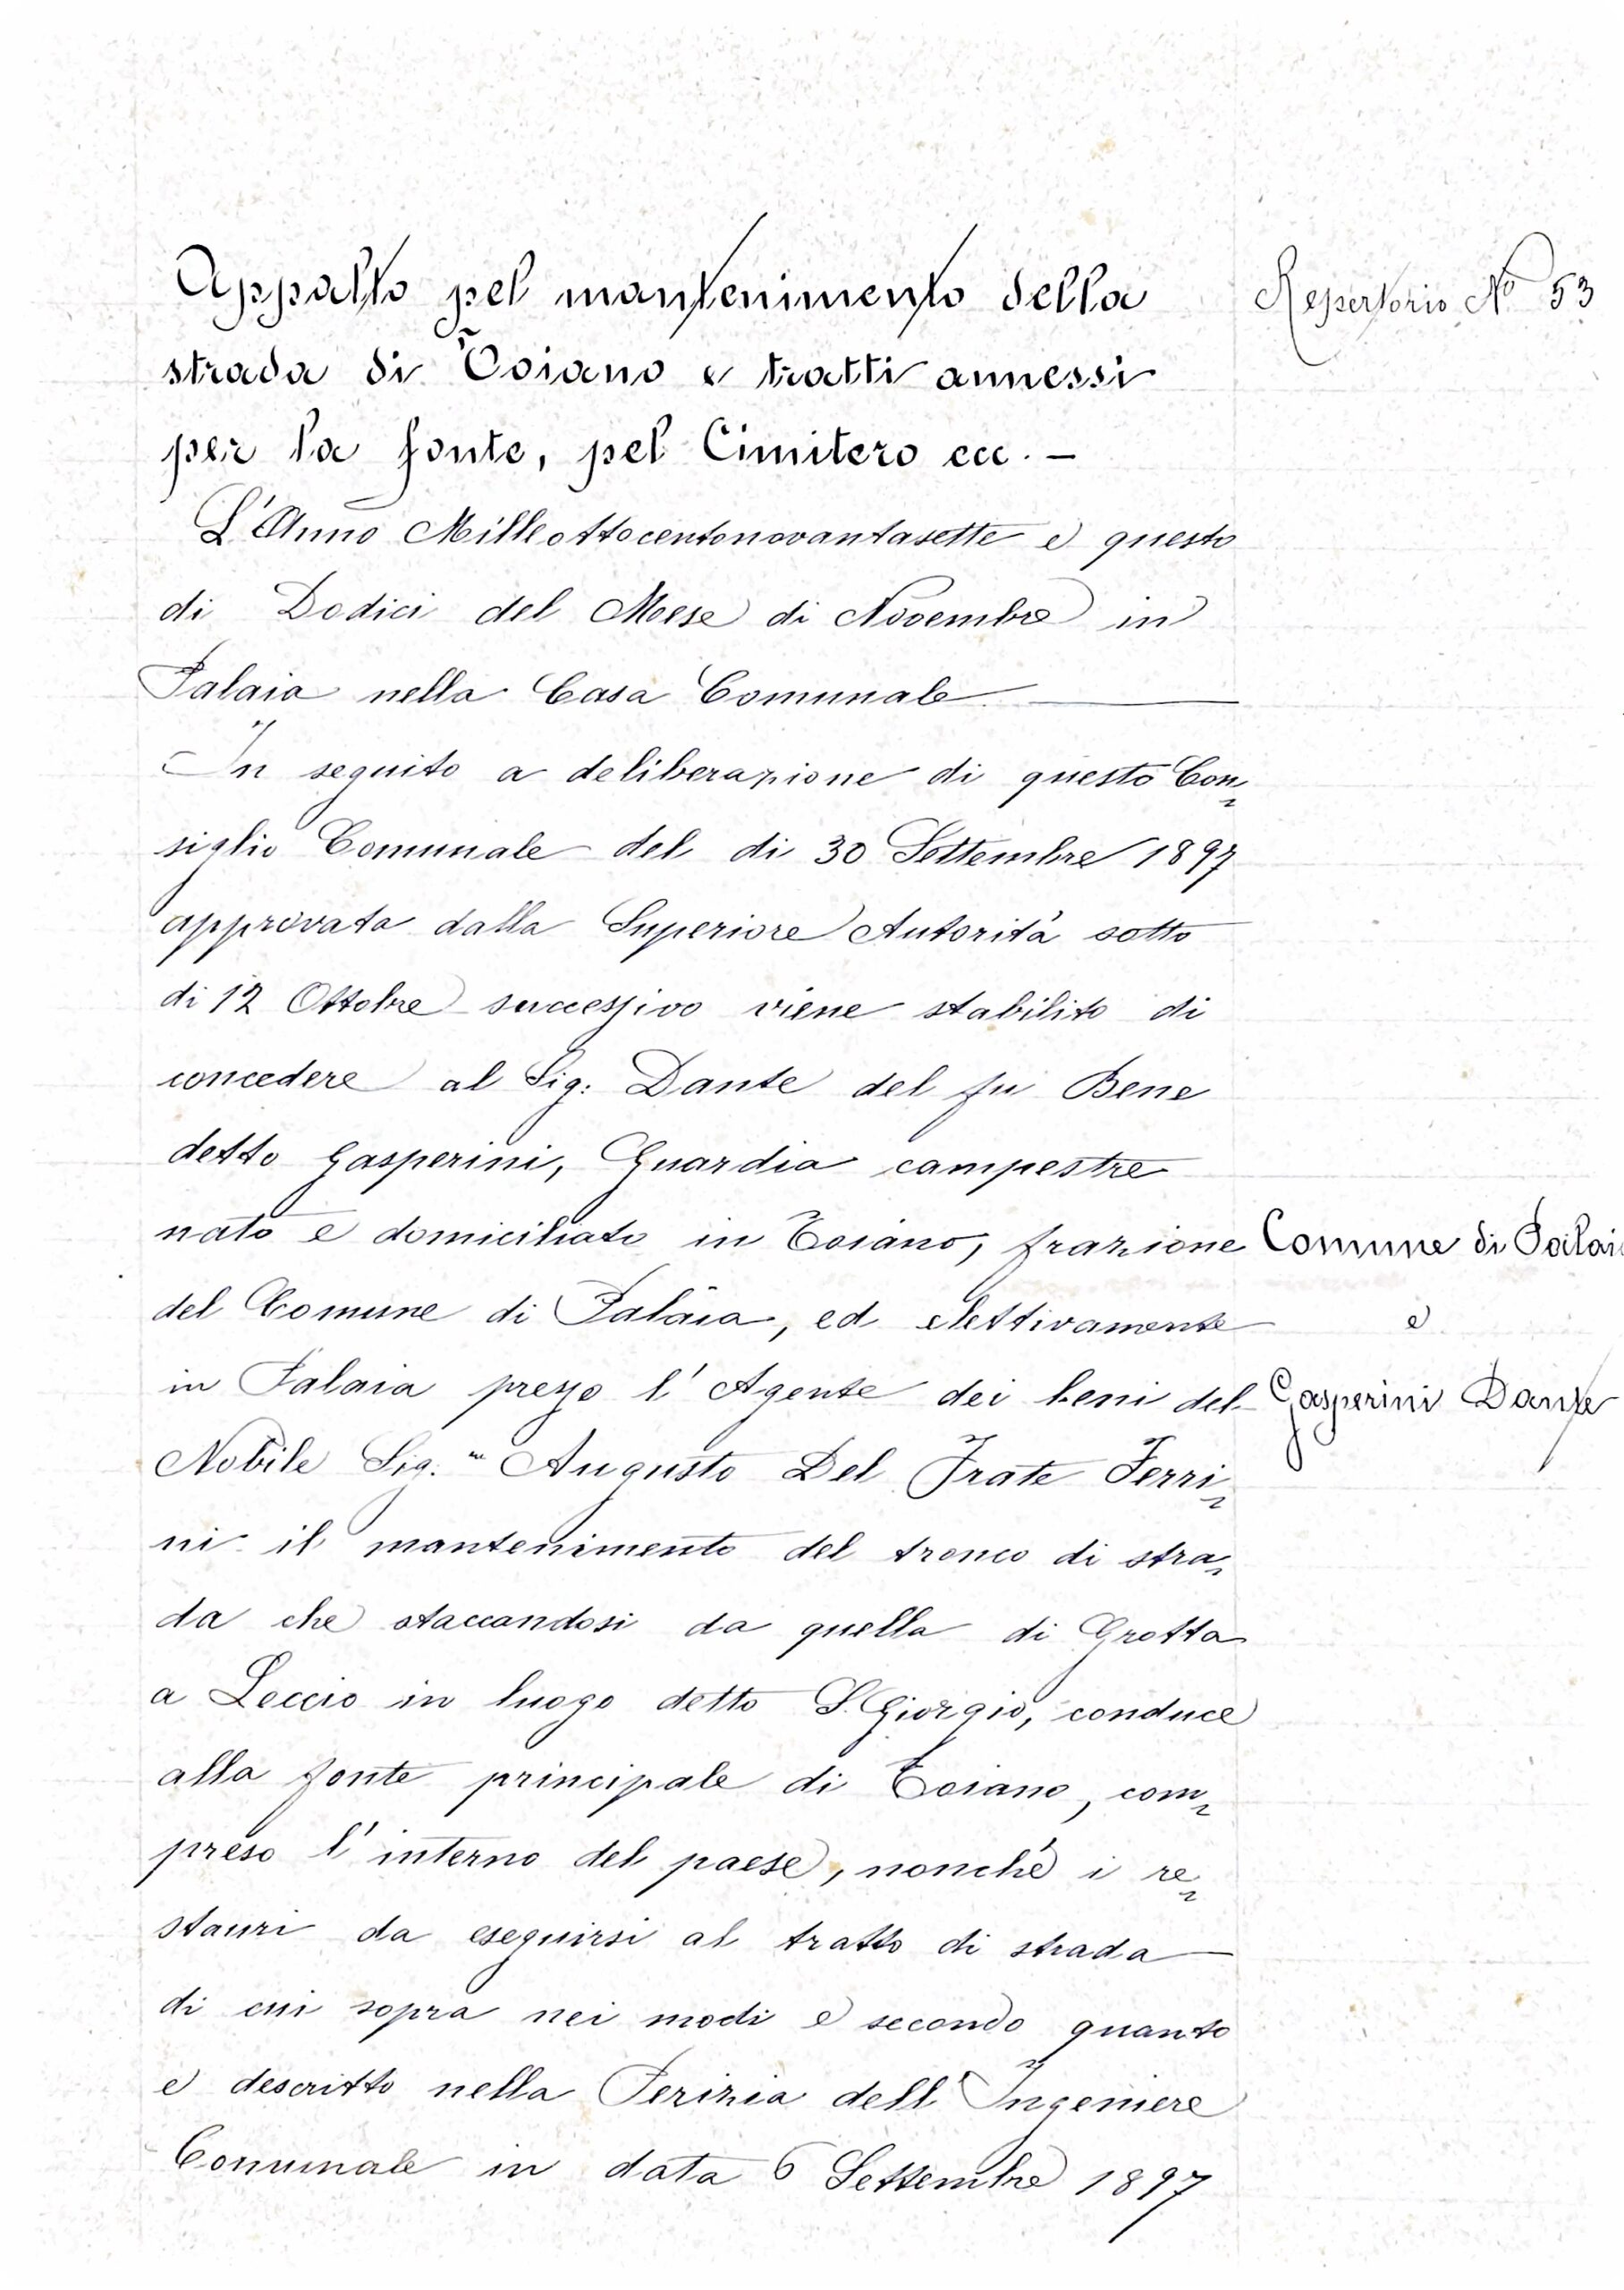 Appalto pel mantenimento della
strada di Toiano e tratti annessi
per la fonte, pel Cimitero ecc. –
Repertorio Nº 53
L'Anno Milleottocentonovantasette e questo
di Dodici del Mese di Novembre in
Palaia nella Casa Comunale
In seguito a deliberazione di questo Con=
siglio Comunale del di 30 Settembre 1897
approvata dalla Superiore Autorità sotto
di 12 Ottobre successivo viene stabilito di
concedere al Sig: Dante del fu Bene
detto Gasperini, Guardia campestre
nato e domiciliato in Toiano, frazione
del Comune di Palaia, ed elettivamente
in Palaia presso l'Agente dei beni del
Nobile Sig. Augusto Del Frate Ferri=
ni il mantenimento del tronco di stra=
da che staccandosi da quella di Grotta
a Leccio in luogo detto S. Giorgio, conduce
alla fonte principale di Toiano, com=
preso l'interno del paese, nonchè i re=
stauri da eseguirsi al tratto di strada
di cui sopra nei modi e secondo quanto
e descritto nella Perizia dell'Ingeniere
Comunale in data 6 Settembre 1897
Comune di Palai
e
Gasperini Dante